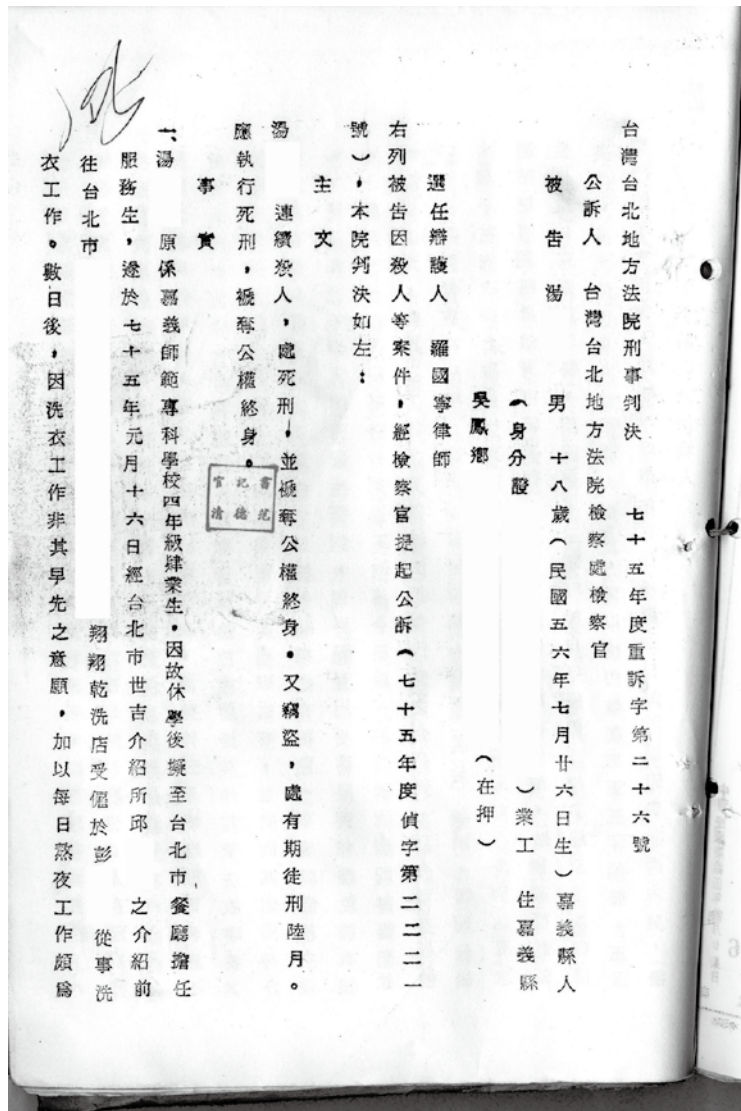 台灣台北地方法院刑事判決 七十五年度重訴字第二十六號
公訴人 台灣台北地方法院檢察處檢察官
被告 湯 男 十八歲(民國五六年七月廿六日生)嘉義縣人
(身分證 )業工 住嘉義縣
吳鳳鄉 (在押)
選任辯護人 羅國寧律師
右列被告因殺人等案件,經檢察官提起公訴(七十五年度偵字第二二二一
號),本院判決如左:
主文
湯 連續殺人,處死刑,並褫奪公權終身。又竊盜,處有期徒刑陸月。
應執行死刑,褫奪公權終身。
書記官范德清
事實
一、湯 原係嘉義師範專科學校四年級肄業生,因故休學後擬至台北市餐廳擔任
服務生,遂於七十五年元月十六日經台北市世吉介紹所邱 之介紹前
往台北市 翔翔乾洗店受僱於彭 從事洗
衣工作。數日後,因洗衣工作非其早先之意願,加以每日熬夜工作頗為